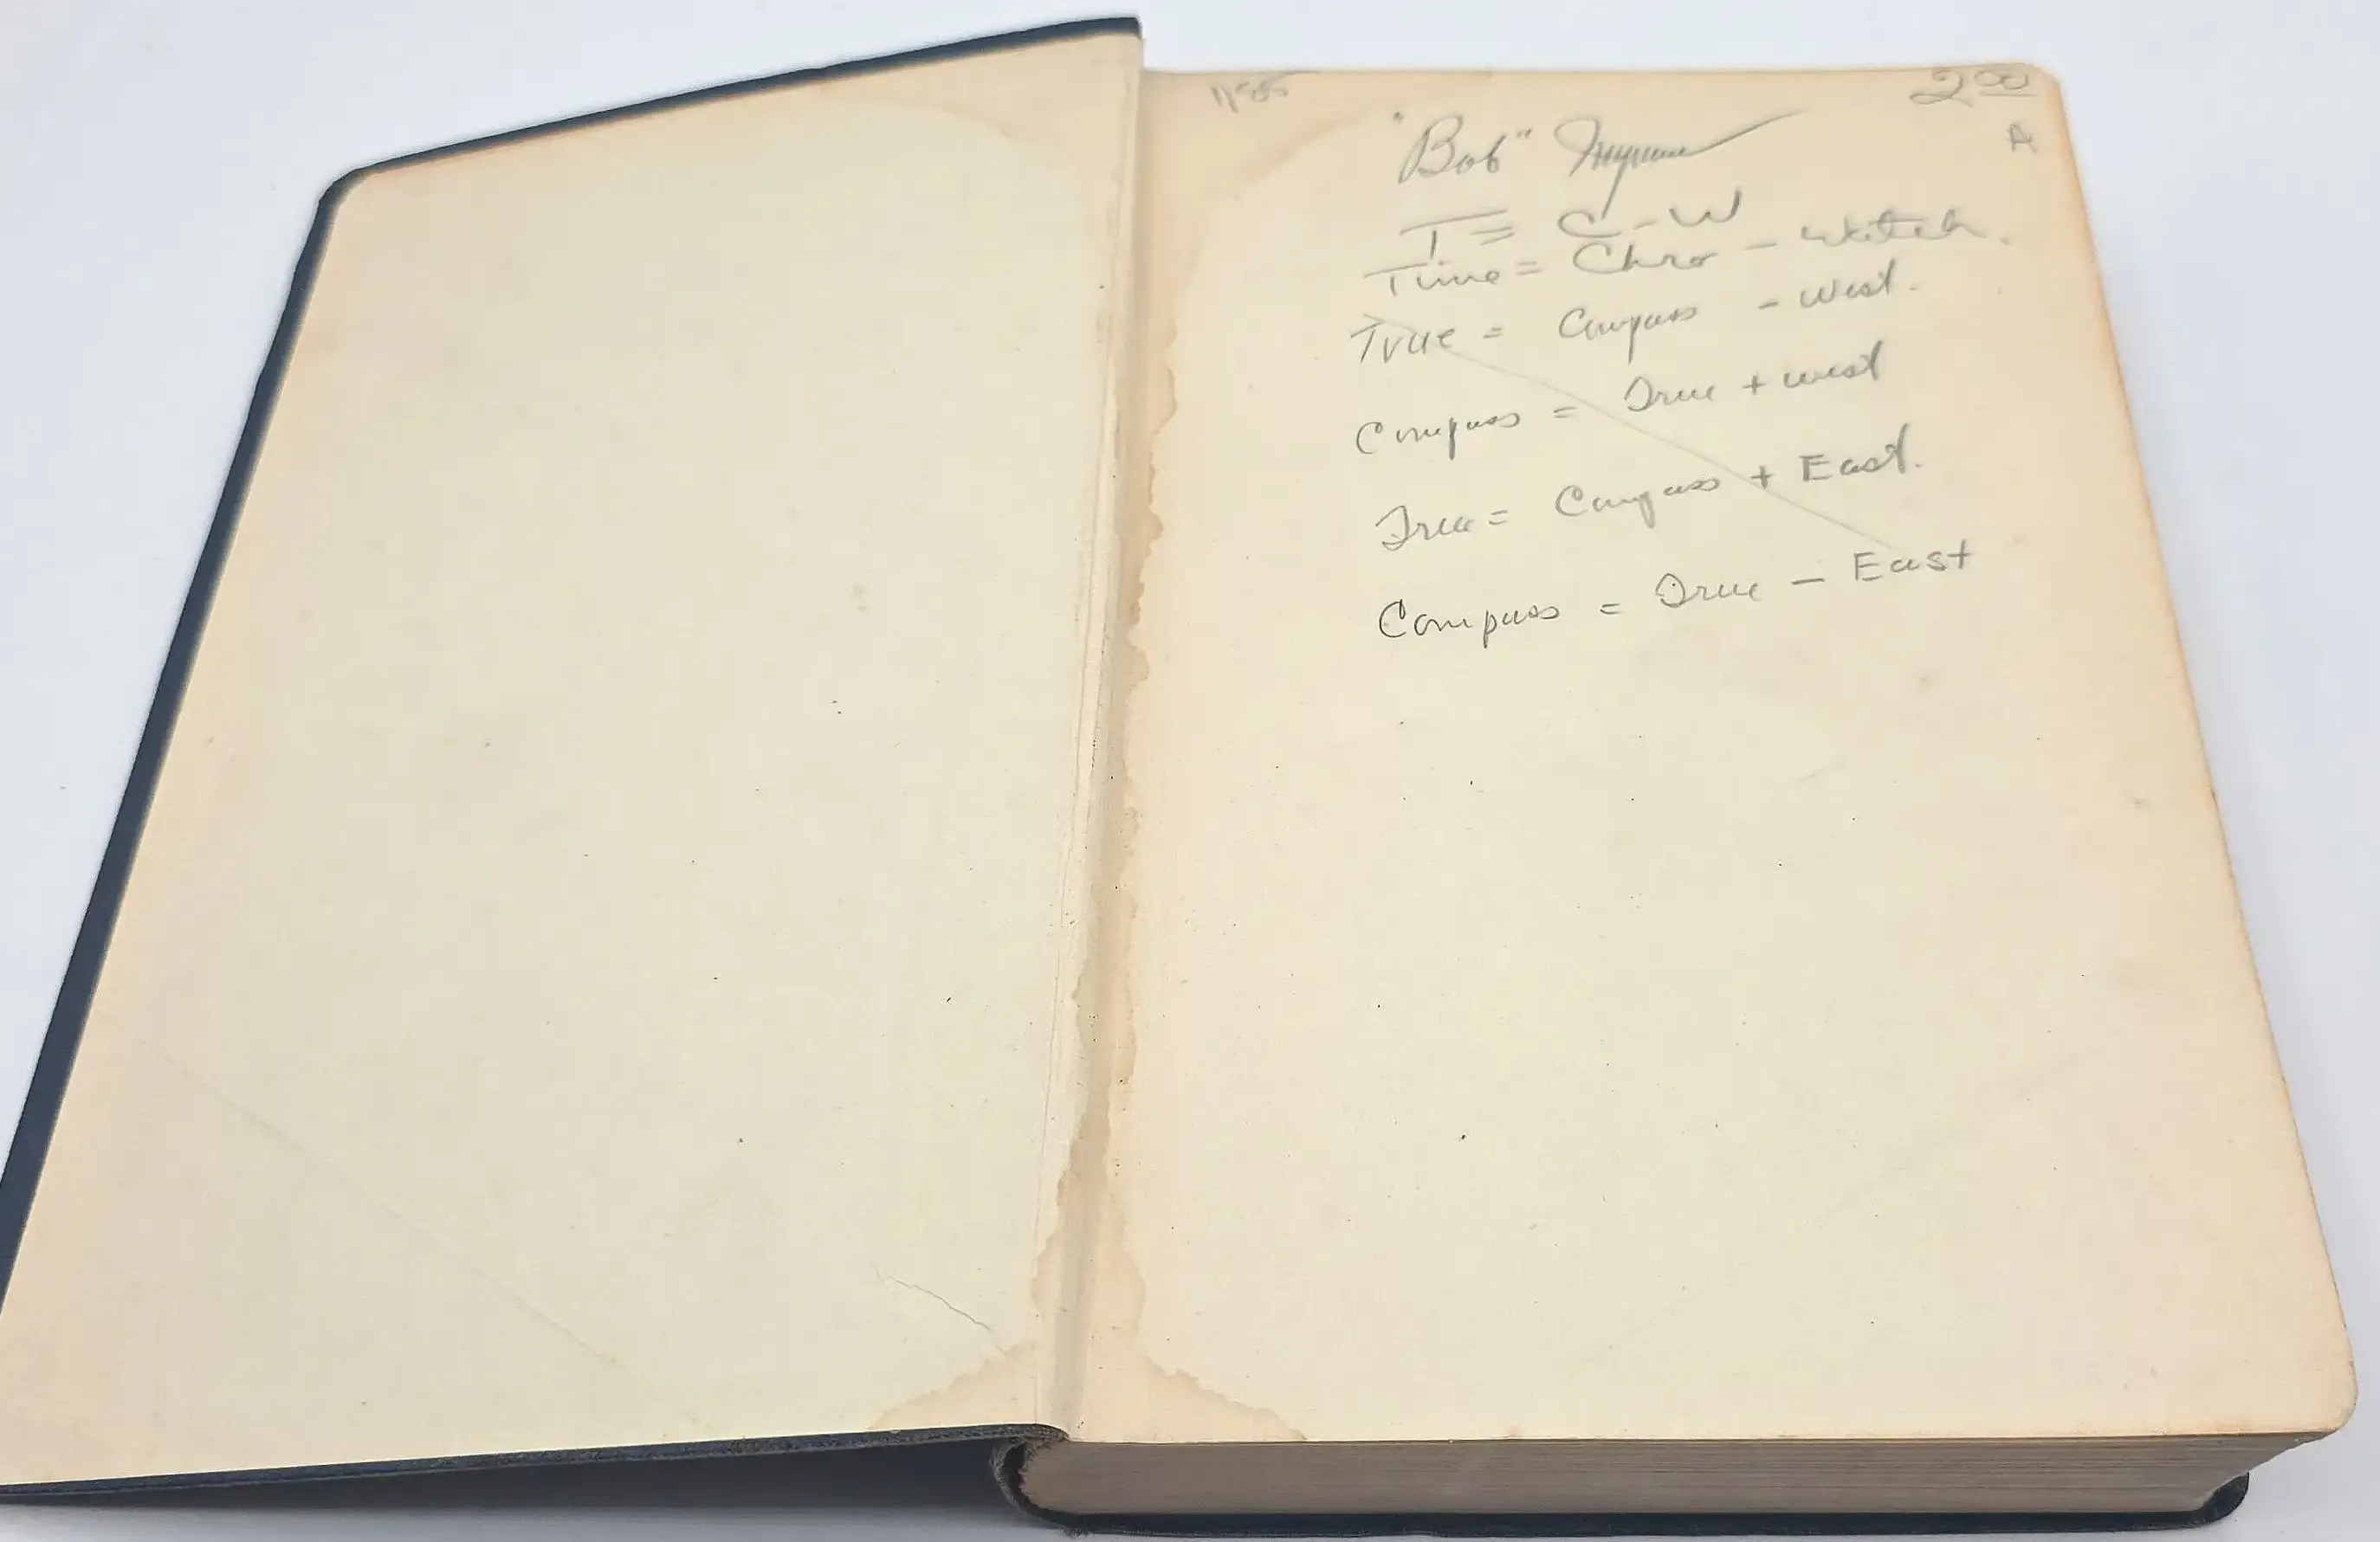 2 00
A
"Bob"
T = C - W
Time = Chro - Watch.
True = Compass - West.
Compass = True + West
True = Compass + East.
Compass = True - East